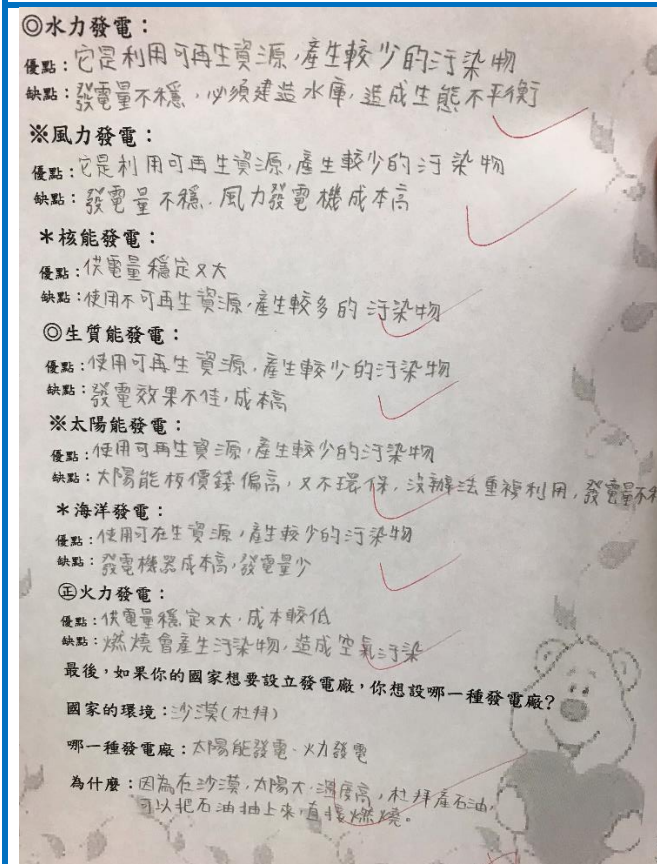 ◎水力發電：
優點：它是利用可再生資源，產生較少的汙染物
缺點：發電量不穩，必須建造水庫，造成生態不平衡
※風力發電：
優點：它是利用可再生資源，產生較少的汙染物
缺點：發電量不穩．風力發電機成本高
＊核能發電：
優點：供電量穩定又大
缺點：使用不可再生資源，產生較多的汙染物
◎生質能發電：
優點：使用可再生資源，產生較少的汙染物
缺點：發電效果不佳，成本高
※太陽能發電：
優點：使用可再生資源，產生較少的汙染物
缺點：太陽能板價錢偏高，又不環保，沒辦法重複利用，發電量不
＊海洋發電：
優點：使用可在生資源，產生較少的汙染物
缺點：發電機器成本高，發電量少
㊣火力發電：
優點：供電量穩定又大，成本較低
缺點：燃燒會產生汙染物，造成空氣汙染
最後，如果你的國家想要設立發電廠，你想設哪一種發電廠?
國家的環境：沙漠(杜拜)
哪一種發電廠：太陽能發電、火力發電
為什麼：因為在沙漠，太陽大、溫度高，杜拜產石油，
可以把石油抽上來，直接燃燒。